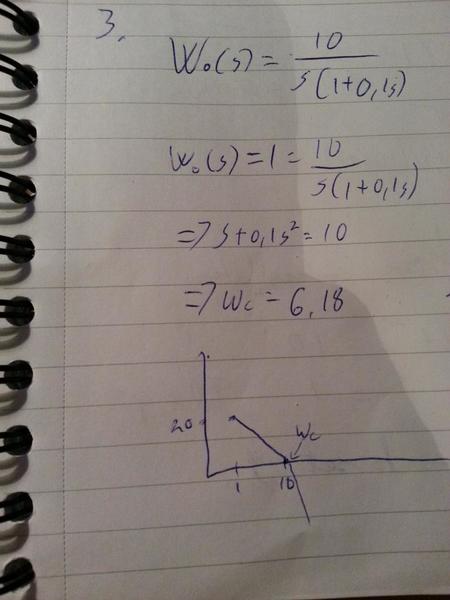 3.
W₀(s) = 10 / s(1+0,1s)
W₀(s) = 1 = 10 / s(1+0,1s)
=> s+0,1s² = 10
=> Wc = 6,18
20
Wc
1 10